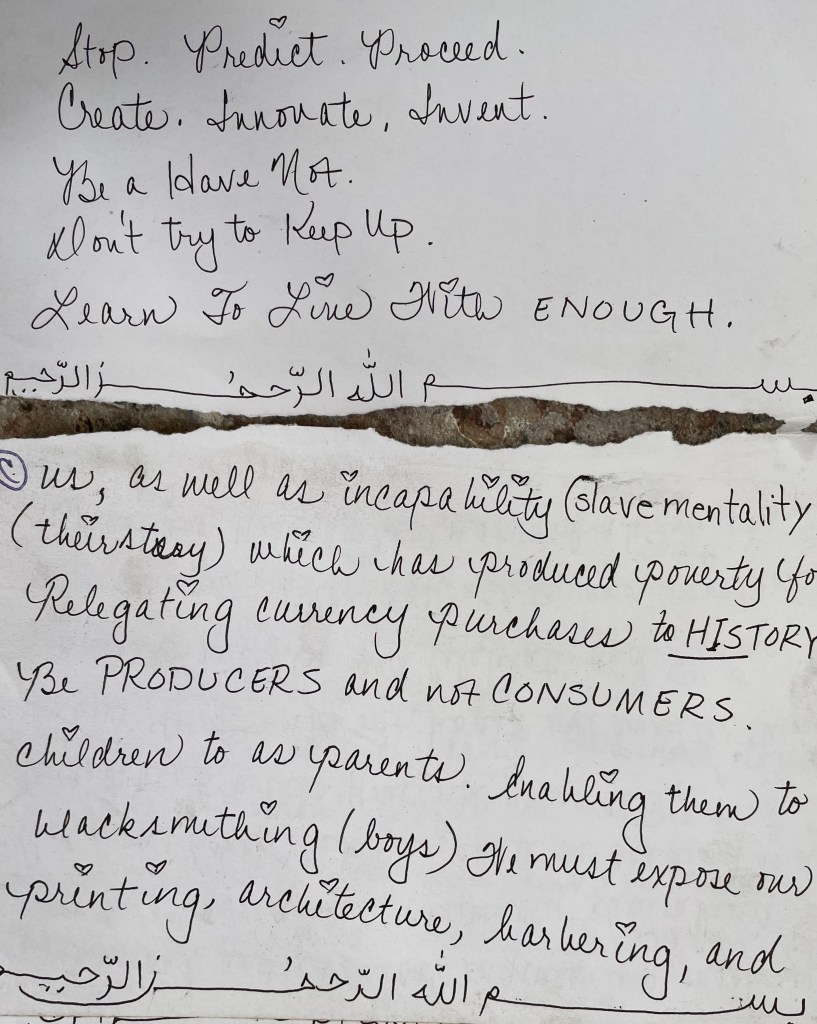 Stop. Predict. Proceed.
Create. Innovate, Invent.
Be a Have Not.
Don't try to Keep Up.
Learn To Live With ENOUGH.
بسم الله الرّحمٰن الرّحيم
© us, as well as incapability (slave mentality
(their story) which has produced poverty (fo
Relegating currency purchases to HISTORY
Be PRODUCERS and not CONSUMERS.
children to as parents. Enabling them to
blacksmithing (boys) We must expose our
printing, architecture, barbering, and
بسم الله الرّحمٰن الرّحيم